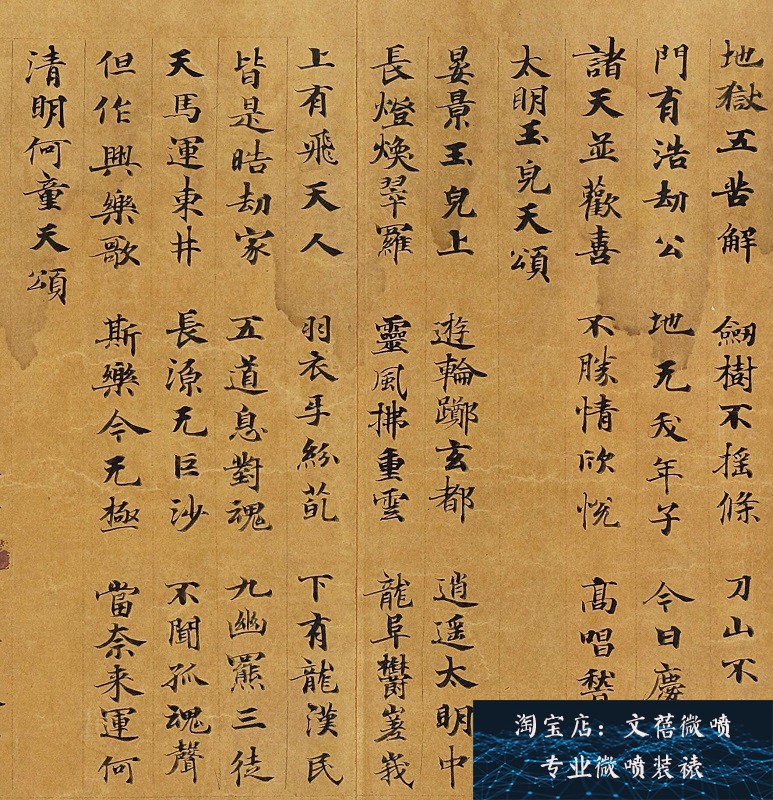 地獄五苦解 劒樹不搖條 刀山不
門有浩劫公 地无夭年子 今日慶
諸天並歡喜 不勝情欣悅 高唱
太明玉皃天頌
晏景玉皃上 遊輪躑玄都 逍遥太明中
長燈煥翠羅 靈風拂重雲 龍阜欝嵳峩
上有飛天人 羽衣手紛葩 下有龍漢民
皆是晧劫家 五道息對魂 九幽羆三徒
天馬運東井 長源无巨沙 不聞孤魂聲
但作興樂歌 斯樂今无極 當奈来運何
清明何童天頌
淘宝店：文蓓微喷
专业微喷装裱